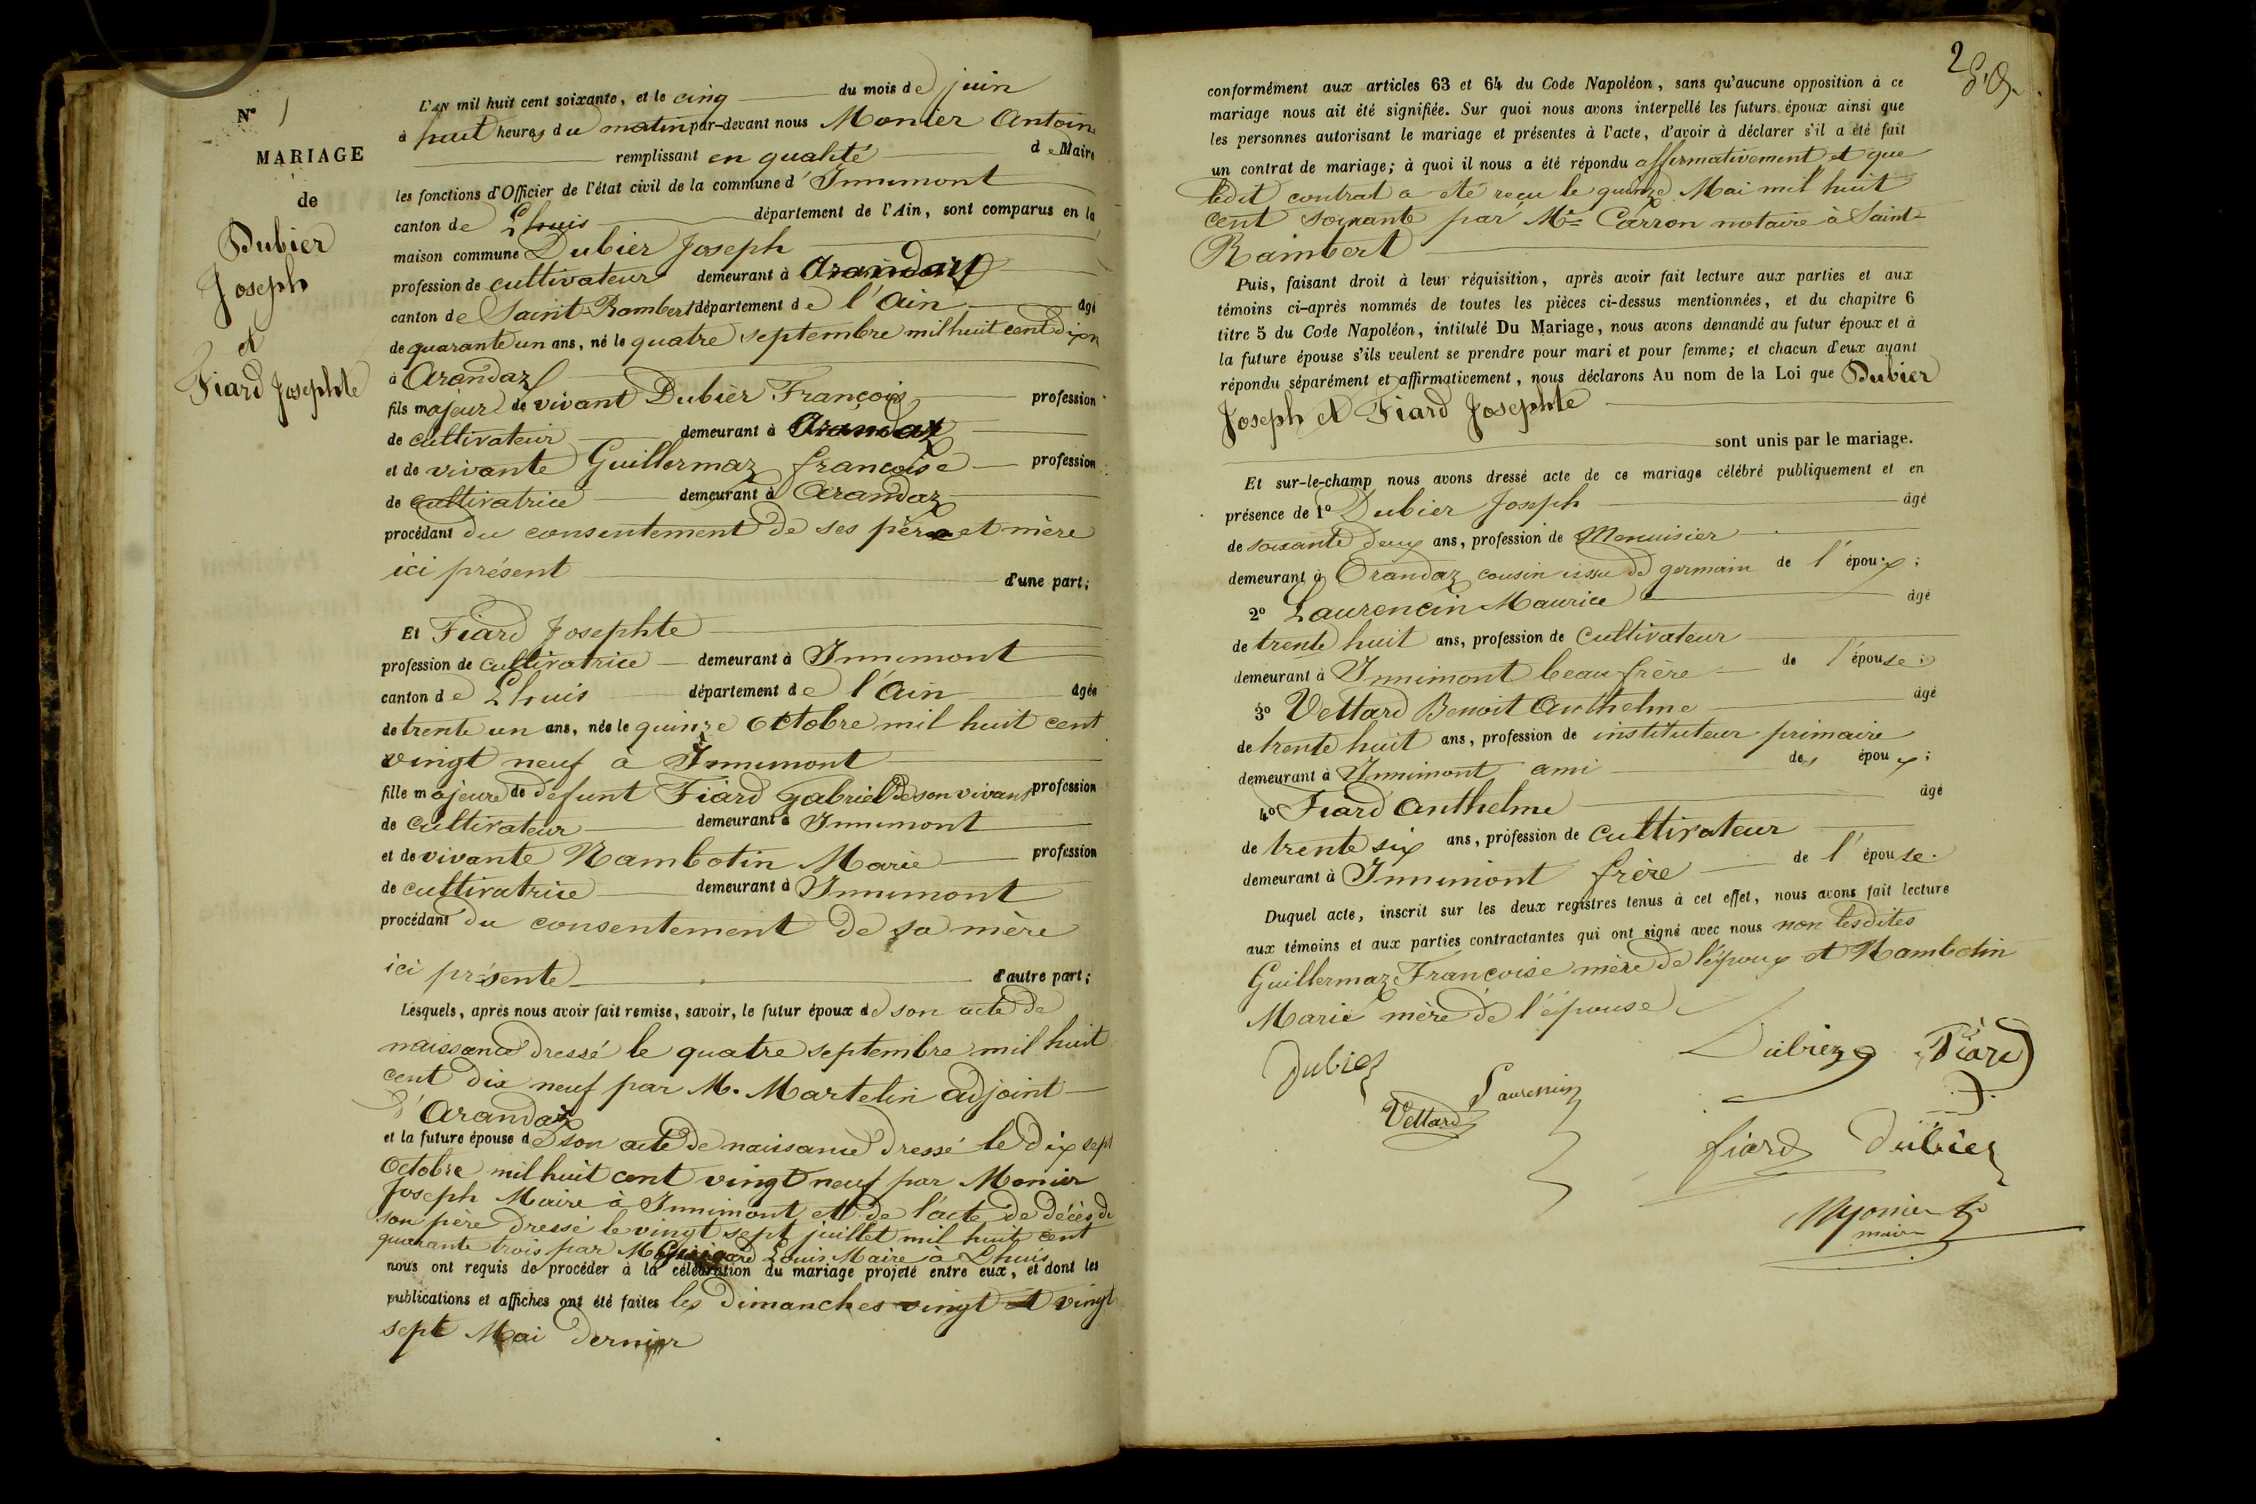 N° 1
MARIAGE
de
Dubier
Joseph
et
Fiard Josephte
L'AN mil huit cent soixante, et le cinq du mois de juin
à huit heures du matin par-devant nous Monier Antoine
remplissant en qualité de Maire
les fonctions d'Officier de l'état civil de la commune d'Innimont
canton de Lhuis département de l'Ain, sont comparus en la
maison commune Dubier Joseph
profession de cultivateur demeurant à Arandaz
canton de Saint-Rambert département de l'Ain âgé
de quarante un ans, né le quatre septembre mil huit cent dix n
à Arandaz
fils majeur de vivant Dubier François profession
de cultivateur demeurant à Arandaz
et de vivante Guillermaz françoise profession
de cultivatrice demeurant à Arandaz
procédant du consentement de ses père et mère
ici présent d'une part;
Et Fiard Josephte
profession de cultivatrice demeurant à Innimont
canton de Lhuis département de l'Ain âgée
de trente un ans, née le quinze octobre mil huit cent
vingt neuf à Innimont
fille majeure de defunt Fiard Gabriel de son vivant profession
de cultivateur demeurant à Innimont
et de vivante Nambotin Marie profession
de cultivatrice demeurant à Innimont
procédant du consentement de sa mère
ici présente d'autre part;
Lesquels, après nous avoir fait remise, savoir, le futur époux de son acte de
naissance dressé le quatre septembre mil huit
cent dix neuf par M. Martelin adjoint
d'Arandaz
et la future épouse de son acte de naissance dressé le dix sept
Octobre mil huit cent vingt neuf par Monier
Joseph Maire à Innimont et de l'acte de décès de
son père dressé le vingt sept juillet mil huit cent
quarante trois par M. Louis Maire à Lhuis
nous ont requis de procéder à la célébration du mariage projeté entre eux, et dont les
publications et affiches ont été faites les dimanches vingt et vingt
sept Mai dernier
2
conformément aux articles 63 et 64 du Code Napoléon, sans qu'aucune opposition à ce
mariage nous ait été signifiée. Sur quoi nous avons interpellé les futurs époux ainsi que
les personnes autorisant le mariage et présentes à l'acte, d'avoir à déclarer s'il a été fait
un contrat de mariage; à quoi il nous a été répondu affirmativement et que
ledit contrat a été reçu le quinze Mai mil huit
cent soixante par Me Carron notaire à Saint-
Rambert
Puis, faisant droit à leur réquisition, après avoir fait lecture aux parties et aux
témoins ci-après nommés de toutes les pièces ci-dessus mentionnées, et du chapitre 6
titre 5 du Code Napoléon, intitulé Du Mariage, nous avons demandé au futur époux et à
la future épouse s'ils veulent se prendre pour mari et pour femme; et chacun d'eux ayant
répondu séparément et affirmativement, nous déclarons Au nom de la Loi que Dubier
Joseph et Fiard Josephte
sont unis par le mariage.
Et sur-le-champ nous avons dressé acte de ce mariage célébré publiquement et en
présence de 1° Dubier Joseph âgé
de soixante deux ans, profession de Menuisier
demeurant à Orandaz cousin issu de germain de l'époux;
2° Laurencin Maurice âgé
de trente huit ans, profession de cultivateur
demeurant à Innimont beau frère de l'épouse;
3° Vettard Benoit Anthelme âgé
de trente huit ans, profession de instituteur primaire
demeurant à Innimont ami des époux;
4° Fiard Anthelme âgé
de trente six ans, profession de cultivateur
demeurant à Innimont frère de l'épouse.
Duquel acte, inscrit sur les deux registres tenus à cet effet, nous avons fait lecture
aux témoins et aux parties contractantes qui ont signé avec nous non lesdites
Guillermaz Françoise mère de l'époux et Nambotin
Marie mère de l'épouse
Dubier Fiard
Dubier
Laurencin
Vettard
fiard Dubier
Monier
maire